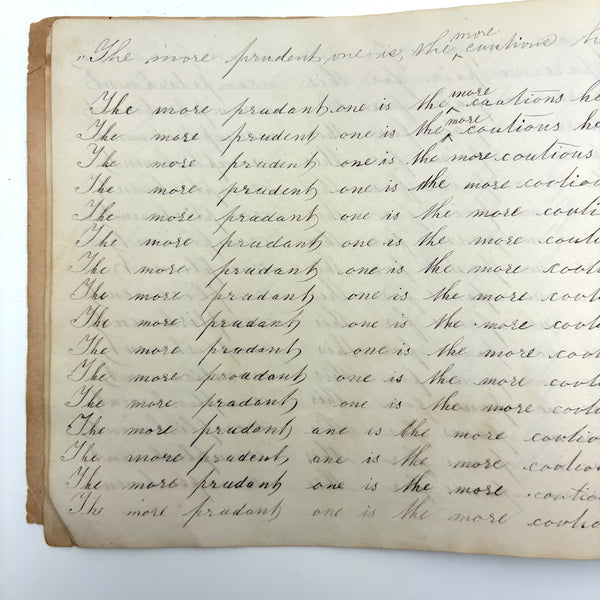 The more prudent one is, the more cautious h
The more pradant one is the more cautions he
The more prudent one is the more coutious he
The more prudent one is the more coutious
The more prudent one is the more cootiou
The more pradant one is the more cootio
The more pradant one is the more coutiu
The more pradant one is the more cooti
The more pradant one is the more cooti
The more pradant one is the more cooti
The more pradant one is the more cooti
The more proudant one is the more cooti
The more pradant one is the more cooti
The more pradant ane is the more cootio
The more pradent ane is the more cootion
The more pradant one is the more coutio
The more pradant one is the more cootio